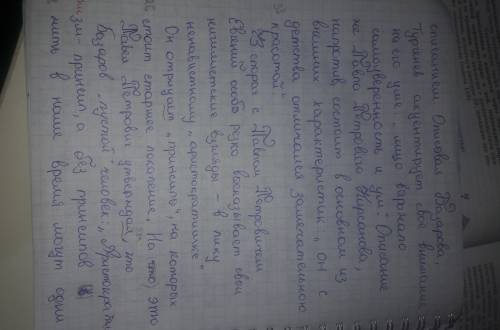 списанием. Описывая Базарова,
Тургенев акцентирует своё внимание
на его уме: „лицо выражало
самоуверенность и ум." Описание
же Павла Петровича Кирсанова,
напротив, состоит в основном из
внешних характеристик „он с
детства отличался замечательною
красотой".
В спорах с Павлом Петровичем
Евгений особо резко восказывает свои
нигилистские взгляды – в пику
ненавистному „аристократишке".
Он отрицает „принсипы", на которых
стоит старшее поколение. На что это
Павел Петрович утверждает, что
Базаров „пустой" человек: „Аристократи-
зм– принсип, а без принсипов
жить в наше время могут одни